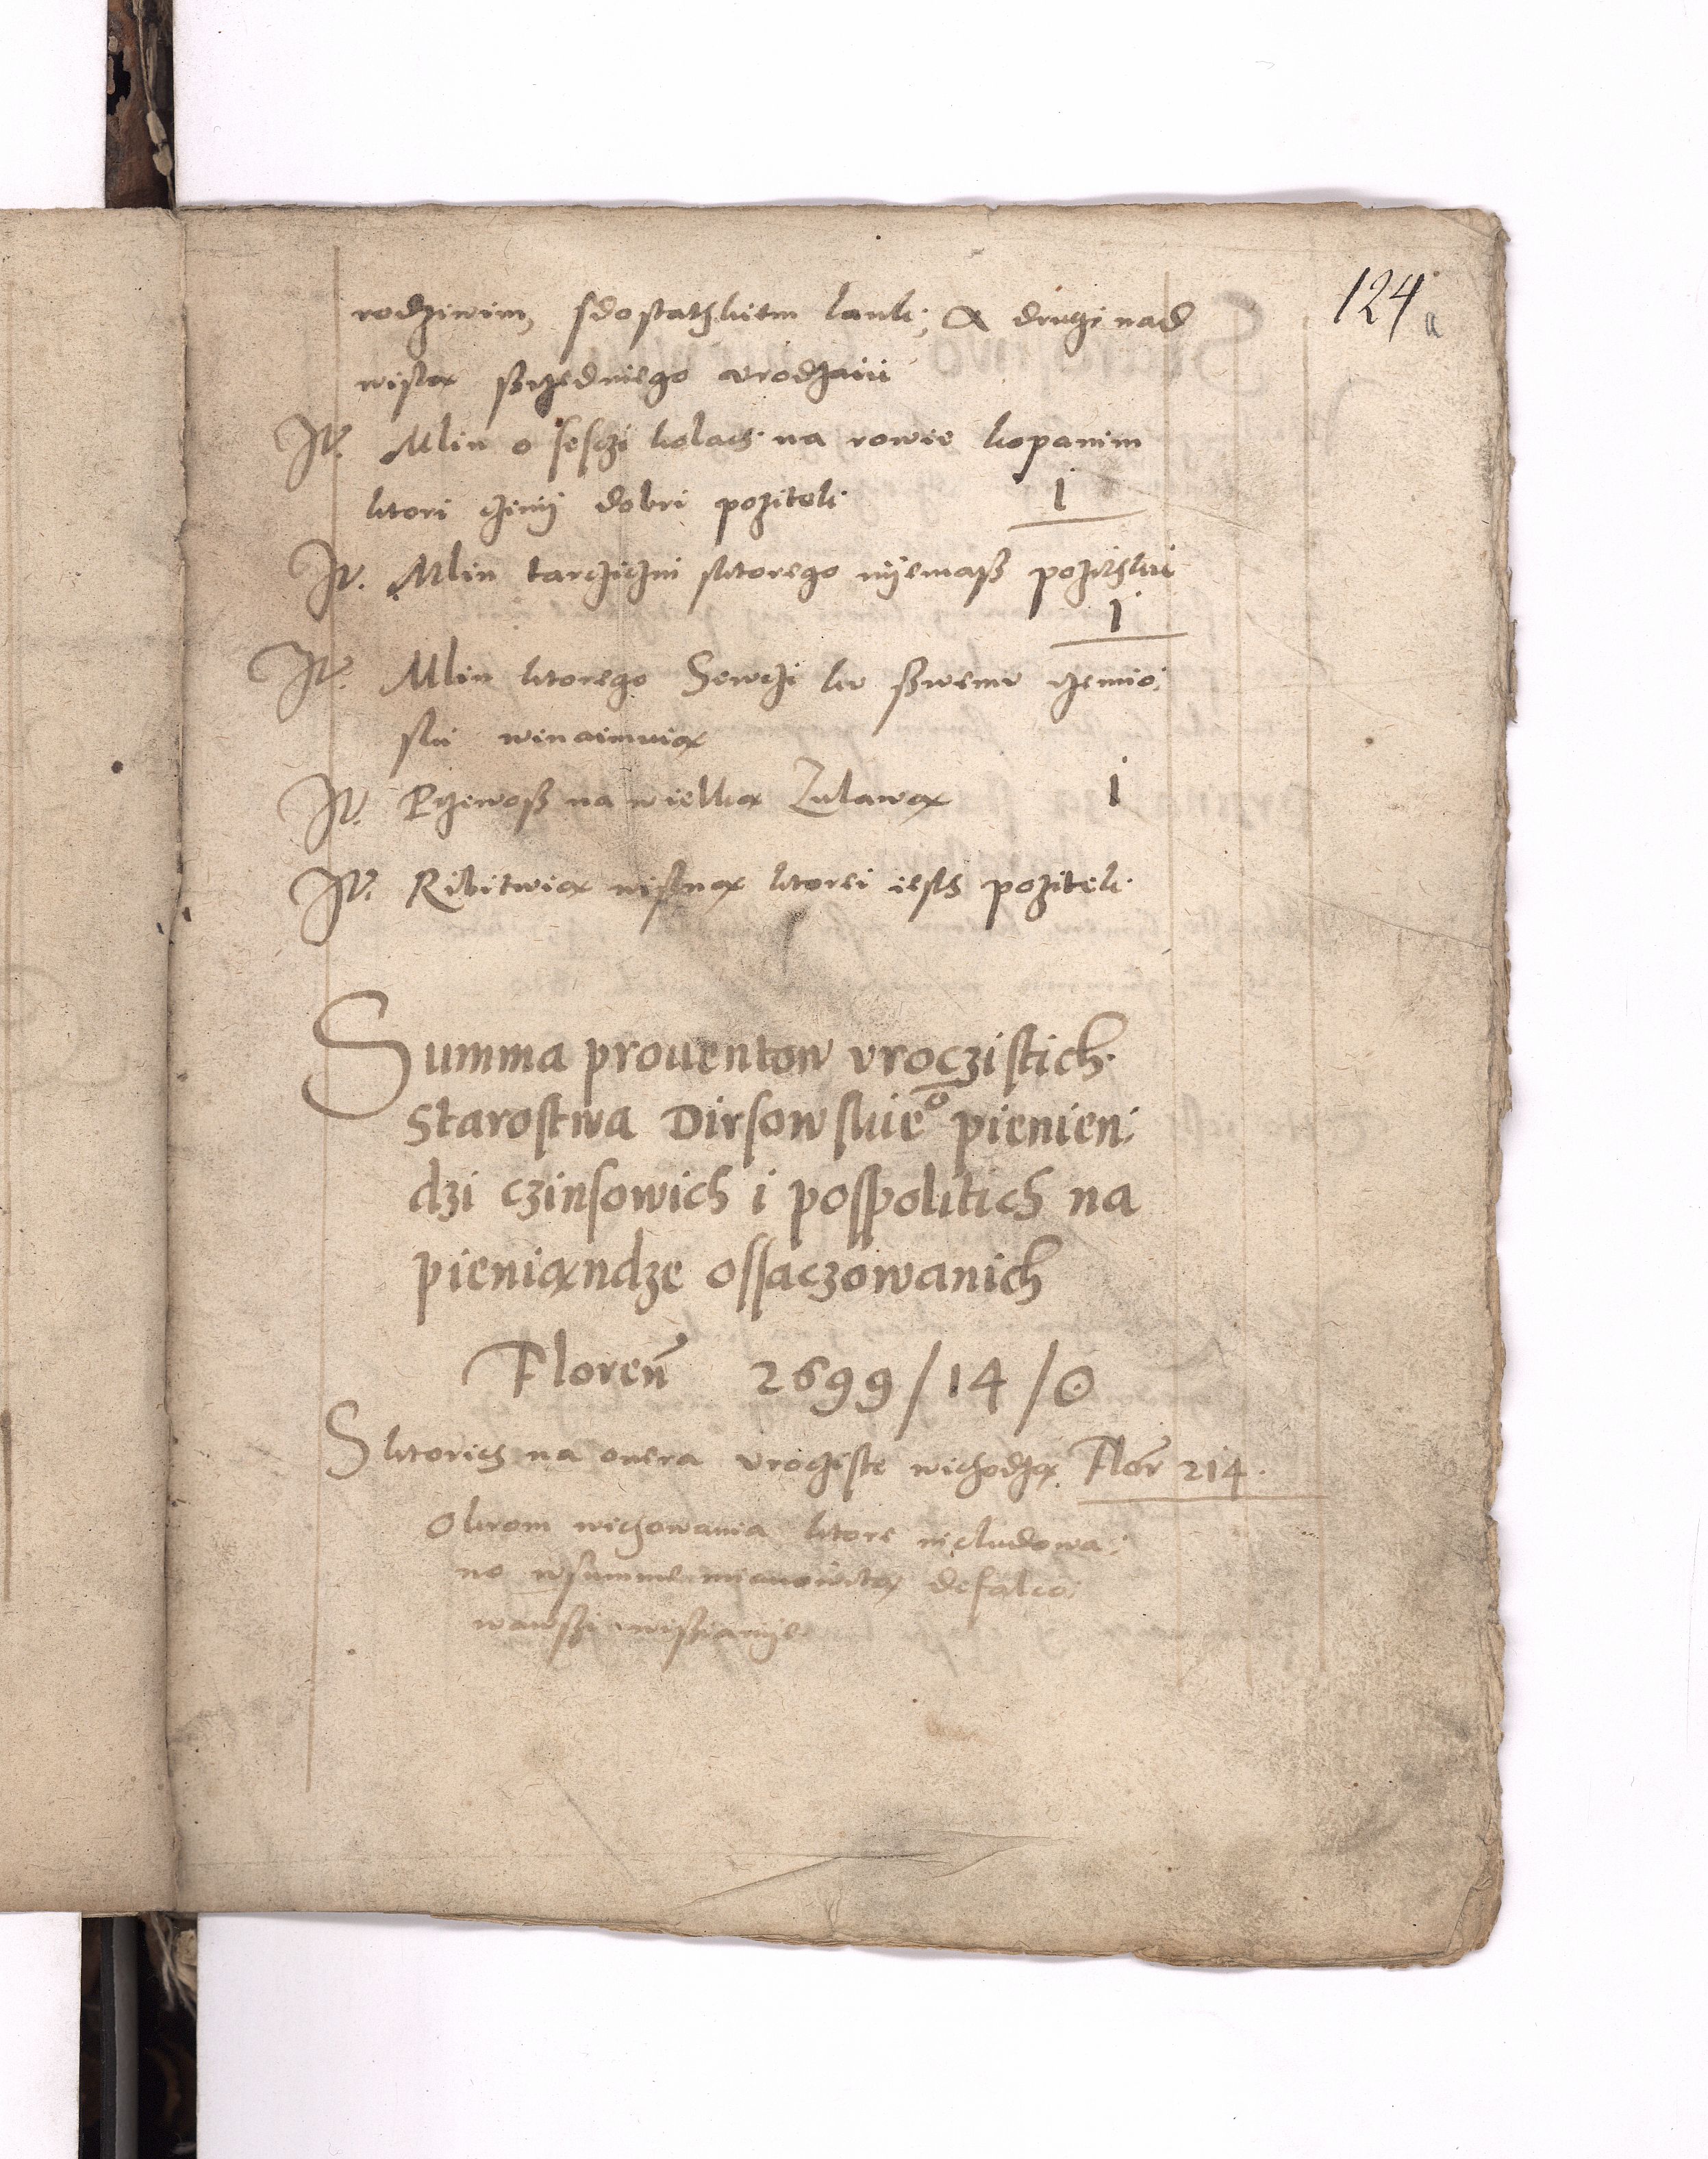 124 a
rodziwim, sdostathkiem lank: A drugi nad
wisłą ßrzedniego urodzaiu
It. Mlin o sesczi kolach na rowie kopanim
ktori czinij dobri pozitek i
It. Mlin tarczicznj sktorego nijemaß pozithku
i
It. Mlin ktorego Sewczi ku ßwemu rzemio:
slu winaimuią
It. Przewoß na wielką Zulawą i
It. Ribitwią wislną ktorei iesth pozitek
Summa prouentow uroczistich
Starostwa Dirsowskieo pienien:
dzi czinsowich i pospolitich na
pieniąndze ossaczowanich
Floren 2699/14/0
S ktorich na onera urocziste wichodzą Flor 214
Okrom wichowania ktore nicludowa:
no wsumme mianowitą defalco:
wawszi